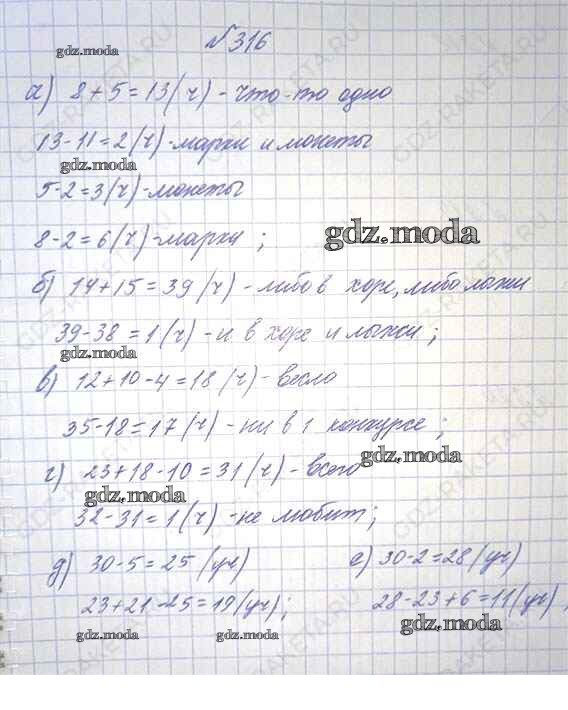 №316
gdz.moda
а) 8+5=13(ч)-что-то одно
13-11=2(ч)-марки и монеты
gdz.moda
5-2=3(ч)-монеты
8-2=6(ч)-марки;
gdz.moda
б) 14+15=39(ч)-либо в хоре, либо лыжи
39-38=1(ч)-и в хоре и лыжи;
gdz.moda
в) 12+10-4=18(ч)-всего
35-18=17(ч)-ни в 1 конкурсе;
gdz.moda
г) 23+18-10=31(ч)-всего
gdz.moda
32-31=1(ч)-не любит;
д) 30-5=25(уч) е) 30-2=28(уч)
23+21-25=19(уч); 28-23+6=11(уч),
gdz.moda gdz.moda gdz.moda
GDZ-RAKETA.RU